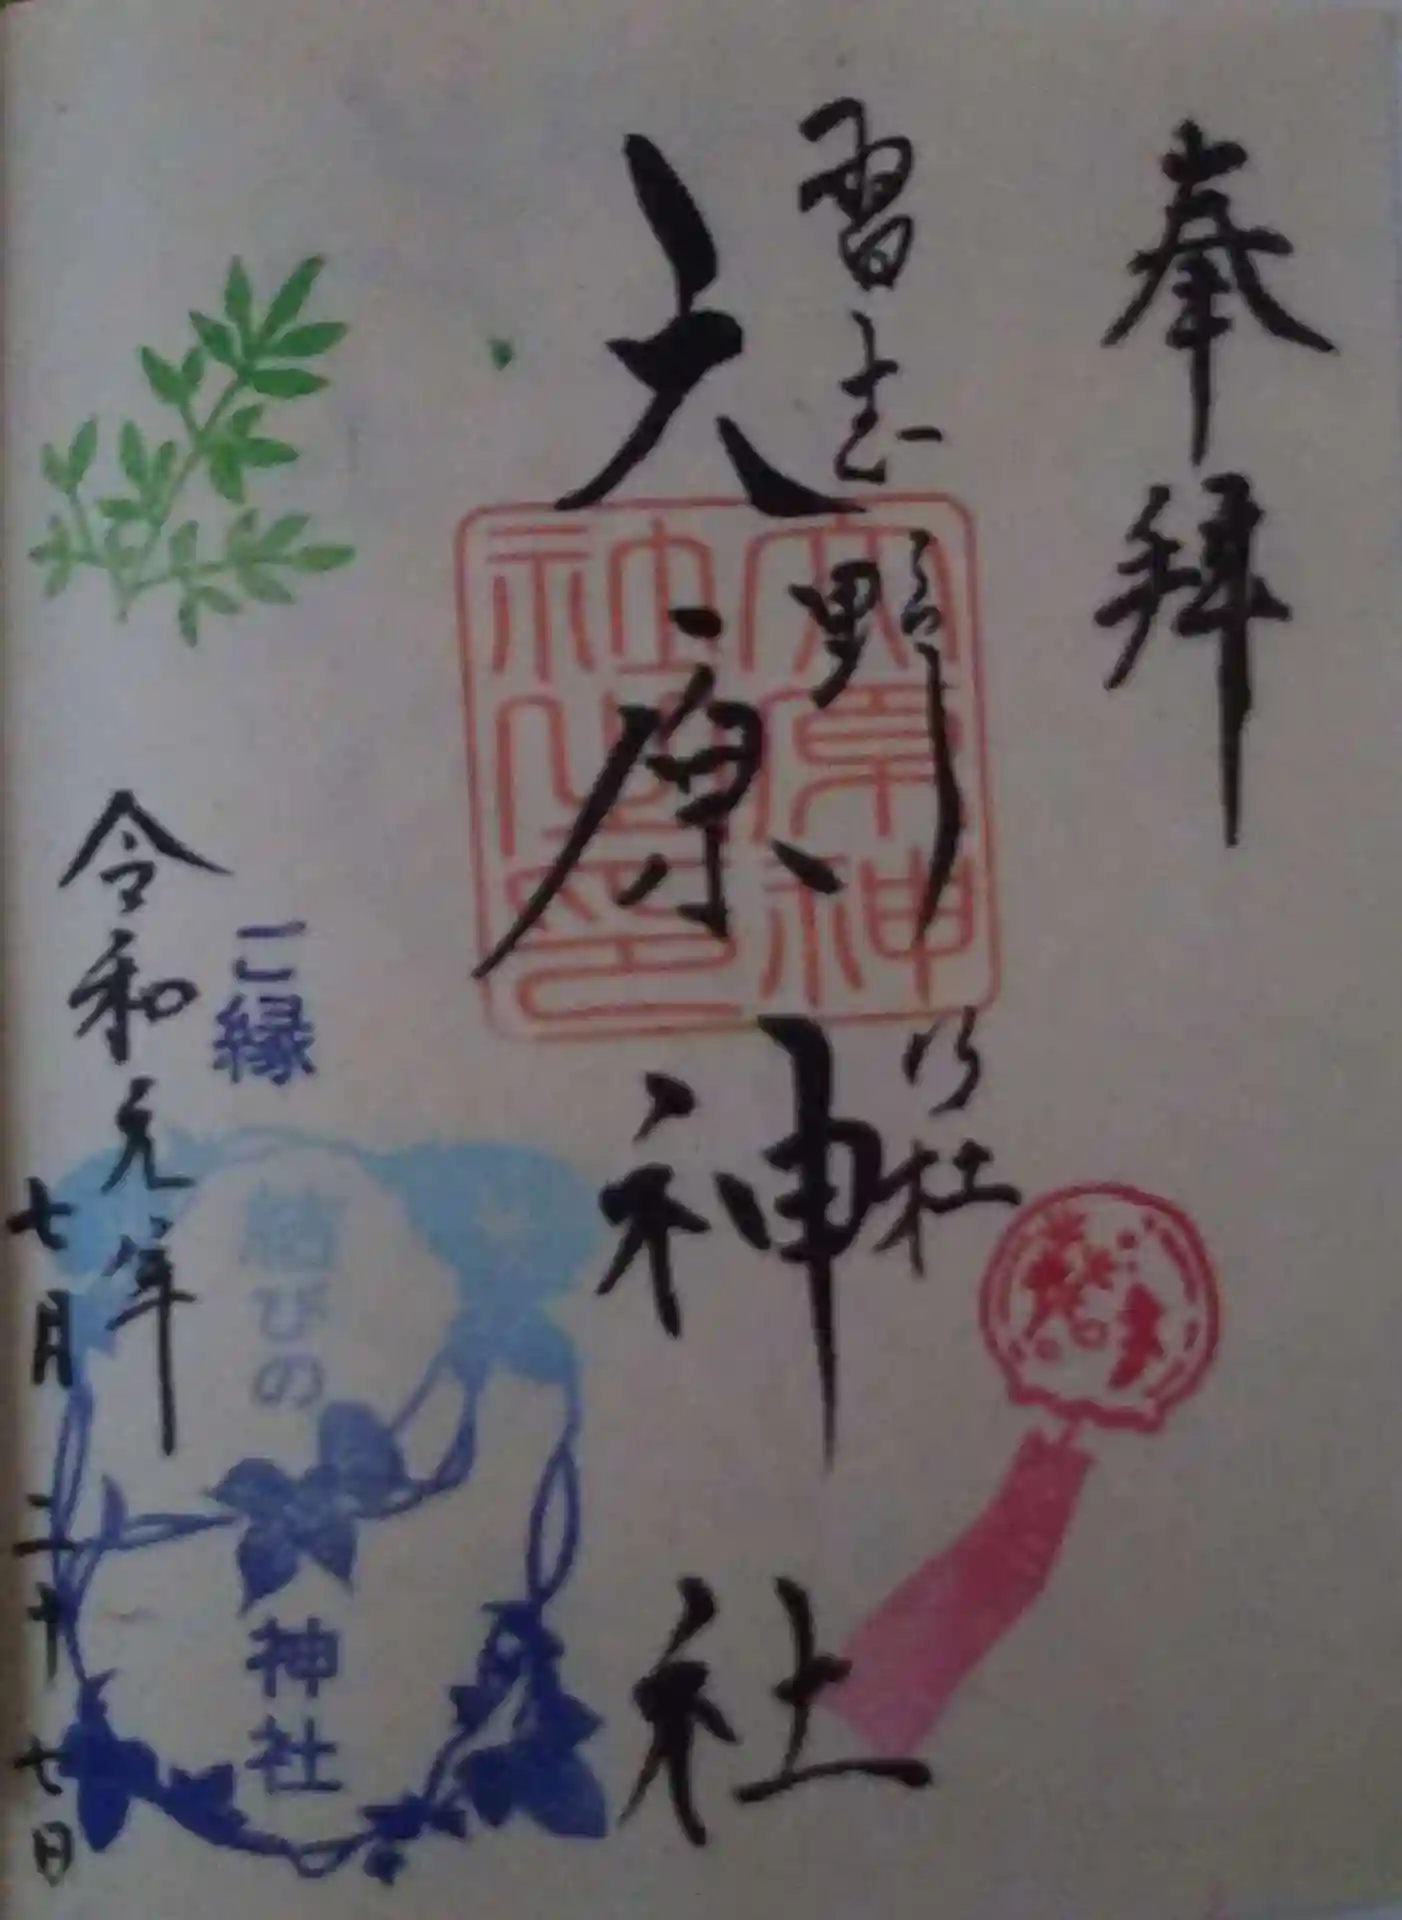 奉拝
習志野の杜
大原神社
大原神社之印
ご縁
結びの
神社
令和元年
七月二十七日